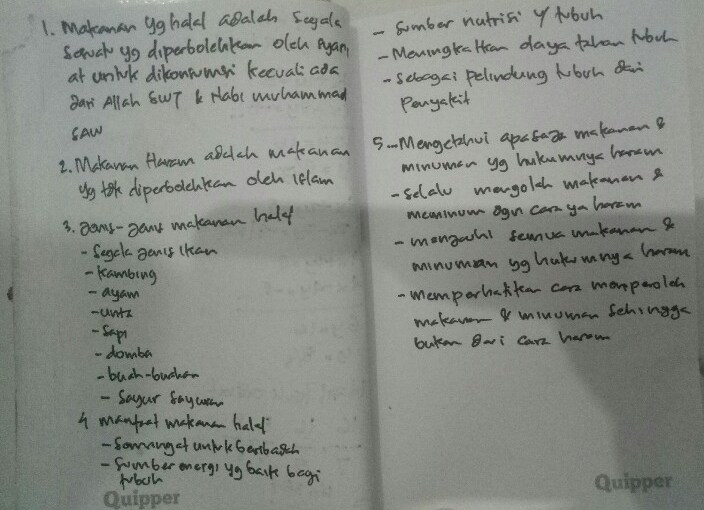 1. Makanan yg halal adalah segala
sesuatu yg diperbolehkan oleh syari
at untuk dikonsumsi kecuali ada
dari Allah SWT & Nabi muhammad
SAW
2. Makanan Haram adalah makanan
yg tdk diperbolehkan oleh islam
3. Jenis-jenis makanan halal
- Segala jenis ikan
- kambing
- ayam
- unta
- Sapi
- domba
- buah-buahan
- Sayur sayuran
4 manfaat makanan halal
- Semangat untuk beribadah
- Sumber energi yg baik bagi
tubuh
Quipper
- Sumber nutrisi tubuh
- Meningkatkan daya tahan tubuh
- Sebagai pelindung tubuh dari
Penyakit
5. - Mengetahui apa saja makanan &
minuman yg hukumnya haram
- selalu mengolah makanan &
meminum dgn cara ya haram
- menjauhi semua makanan &
minuman yg hukumnya haram
- memperhatikan cara memperoleh
makanan & minuman sehingga
bukan dari cara haram
Quipper